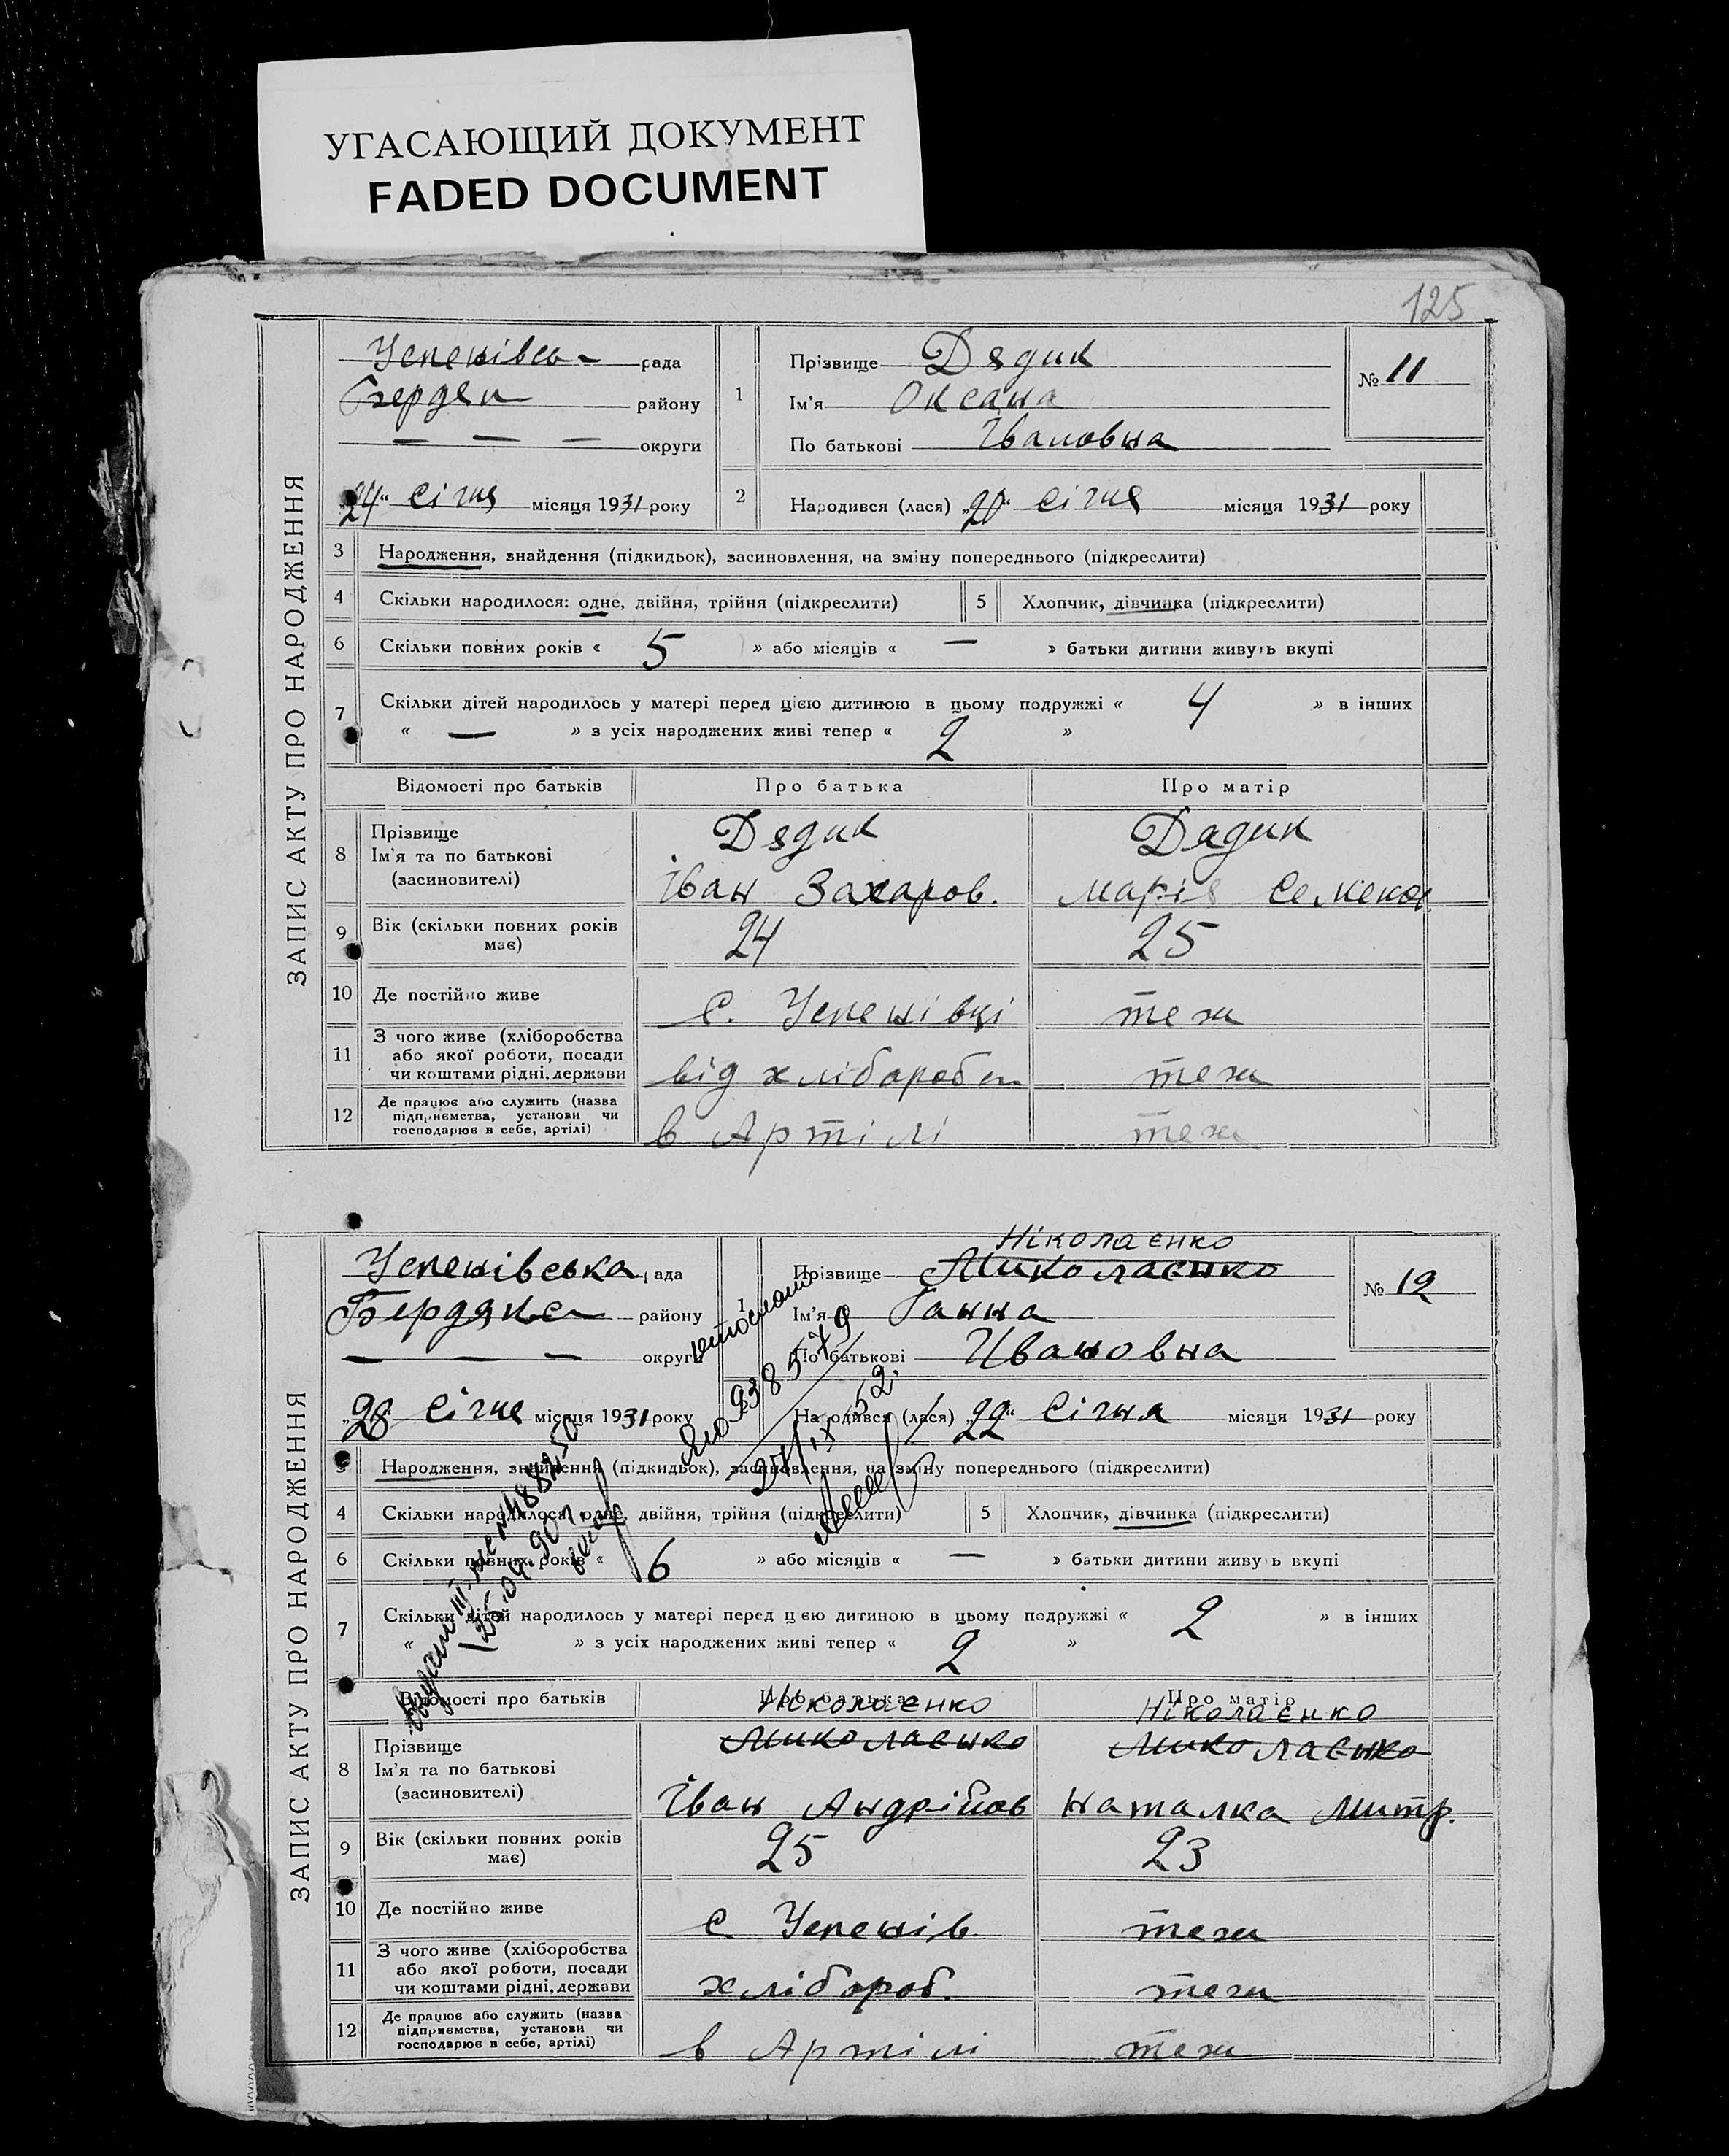 УГАСАЮЩИЙ ДОКУМЕНТ
FADED DOCUMENT
125
ЗАПИС АКТУ ПРО НАРОДЖЕННЯ
Успенівсь рада
Бердян району
— — — округи
„24“ Січня місяця 1931 року
1
Прізвище Дядик
Ім'я Оксана
По батькові Івановна
№ 11
2 Народився (лася) „20“ Січня місяця 1931 року
3 Народження, знайдення (підкидьок), засиновлення, на зміну попереднього (підкреслити)
4 Скільки народилося: одне, двійня, трійня (підкреслити) 5 Хлопчик, дівчинка (підкреслити)
6 Скільки повних років « 5 » або місяців « — » батьки дитини живуть вкупі
7 Скільки дітей народилось у матері перед цією дитиною в цьому подружжі « 4 » в інших
« — » з усіх народжених живі тепер « 2 »
Відомості про батьків Про батька Про матір
8 Прізвище Дядик Дядик
Ім'я та по батькові
(засиновителі) Іван Захаров. Марія Семенов
9 Вік (скільки повних років має) 24 25
10 Де постійно живе с. Успенівці теж
11 З чого живе (хліборобства
або якої роботи, посади
чи коштами рідні, держави від хлібороб теж
12 Де працює або служить (назва
підприємства, установи чи
господарює в себе, артілі) в Артілі теж
ЗАПИС АКТУ ПРО НАРОДЖЕННЯ
Успенівська рада
Бердянс району
— — — округи
„28“ Січня місяця 1931 року
1
Ніколаєнко
Прізвище Миколаєнко
Ім'я Ганна
По батькові Ивановна
№ 12
Народився (лася) „22“ Січня місяця 1931 року
3 Народження, знайдення (підкидьок), засиновлення, на зміну попереднього (підкреслити)
4 Скільки народилося: одне, двійня, трійня (підкреслити) 5 Хлопчик, дівчинка (підкреслити)
6 Скільки повних років « 6 » або місяців « — » батьки дитини живуь вкупі
7 Скільки дітей народилось у матері перед цією дитиною в цьому подружжі « 2 » в інших
« » з усіх народжених живі тепер « 2 »
Відомості про батьків Про батька Про матір
Ніколаєнко Ніколаєнко
8 Прізвище Миколаєнко Миколаєнко
Ім'я та по батькові
(засиновителі) Іван Андрійов Наталка Митр.
9 Вік (скільки повних років має) 25 23
10 Де постійно живе с Успенів. теж
11 З чого живе (хліборобства
або якої роботи, посади
чи коштами рідні, держави хлібороб. теж
12 Де працює або служить (назва
підприємства, установи чи
господарює в себе, артілі) в Артілі теж